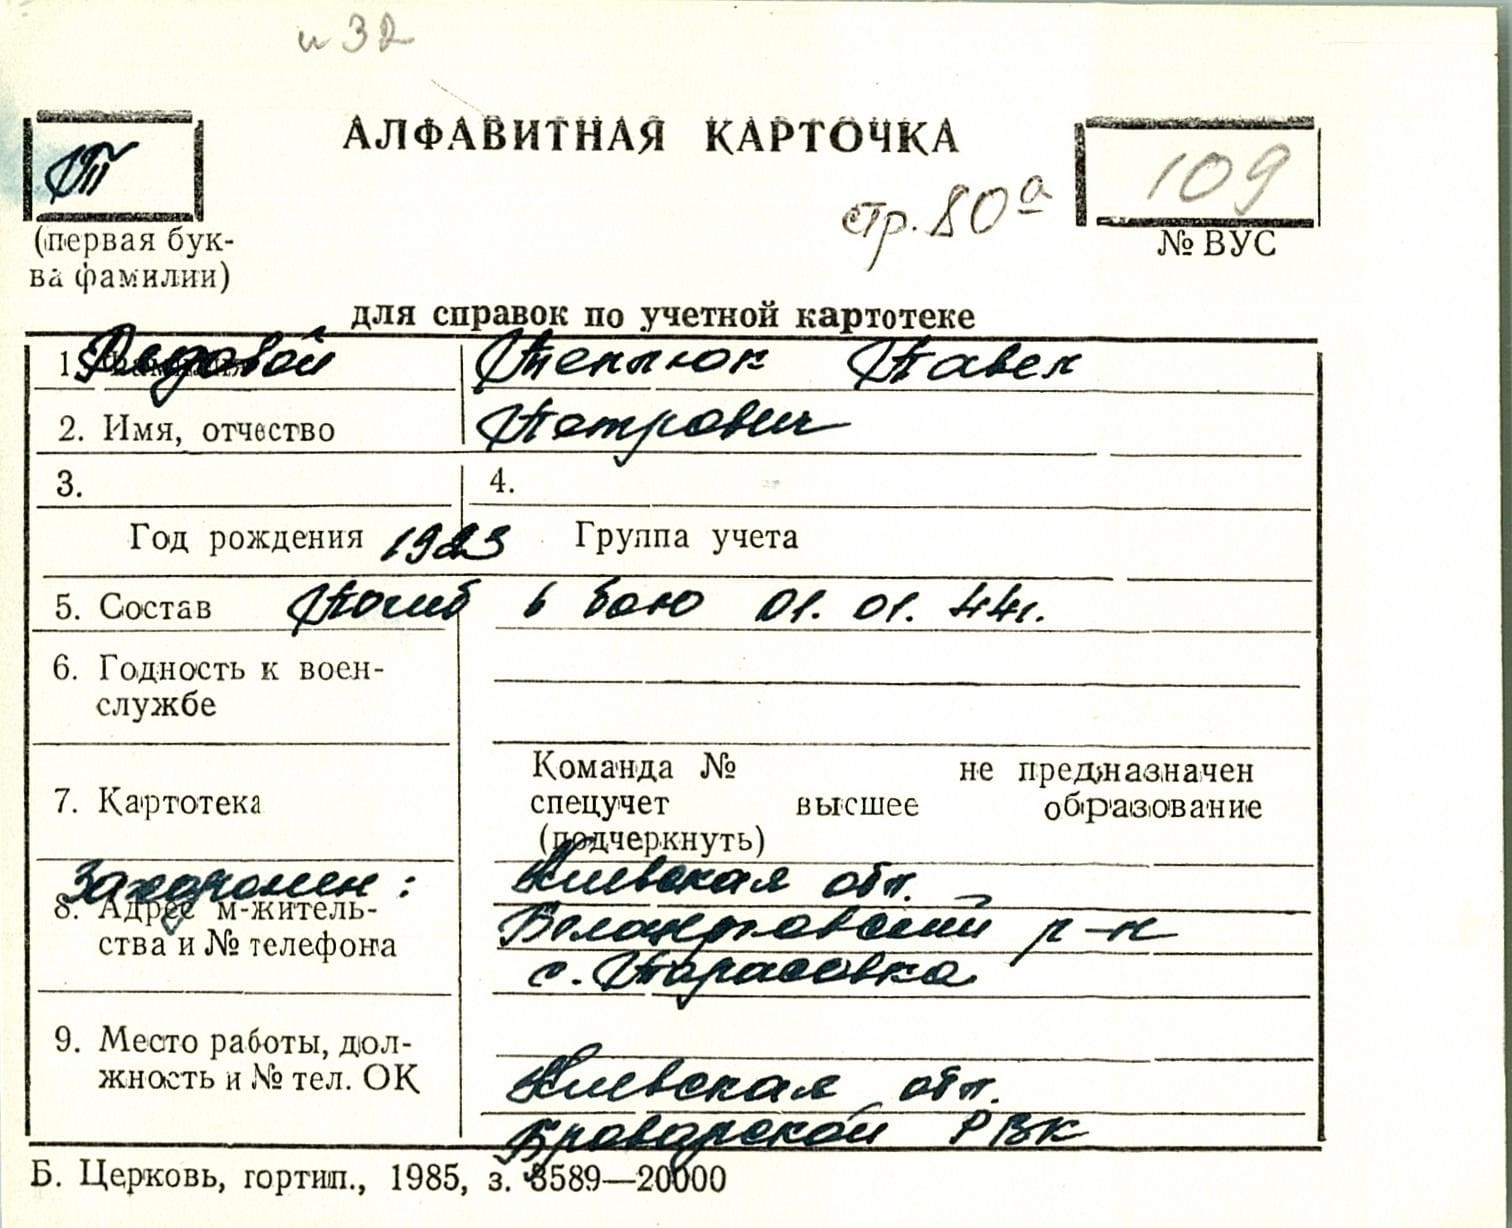 и 32
Т
АЛФАВИТНАЯ КАРТОЧКА
стр. 80а
109
(первая бук-
ва фамилии)
№ ВУС
для справок по учетной картотеке
1. Рядовой Теплюк Павел
2. Имя, отчество Петрович
3. 4.
Год рождения 1923 Группа учета
5. Состав Погиб в бою 01.01.44г.
6. Годность к воен-
службе
Команда № не предназначен
7. Картотека спецучет высшее образование
(подчеркнуть)
Захоронен: Киевская обл.
8. Адрес м-житель- Белоцерковский р-н
ства и № телефона с. Тарасовка
9. Место работы, дол-
жность и № тел. ОК Киевская обл.
Броварской РВК
Б. Церковь, гортип., 1985, з. 3589—20000